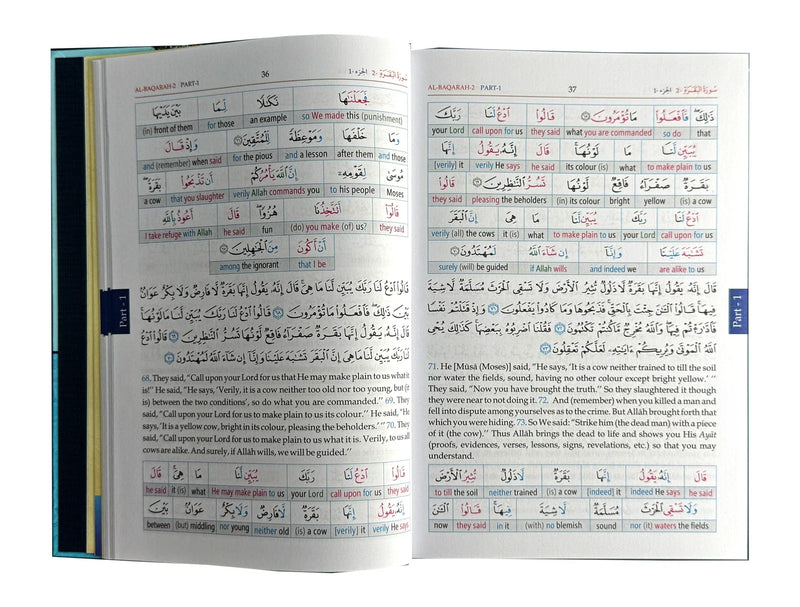 36
AL-BAQARAH-2 PART-1
سورة البقرة -2 الجزء -1
فَجَعَلْنَٰهَا نَكَٰلًا لِّمَا بَيْنَ يَدَيْهَا
(in) front of them for those an example so We made this (punishment)
وَمَا خَلْفَهَا وَمَوْعِظَةً لِّلْمُتَّقِينَ وَإِذْ قَالَ
and (remember) when said for the pious and a lesson after them and those
مُوسَىٰ لِقَوْمِهِۦٓ إِنَّ ٱللَّهَ يَأْمُرُكُمْ أَن تَذْبَحُوا۟ بَقَرَةً
a cow that you slaughter verily Allah commands you to his people Moses
قَالُوٓا۟ أَتَتَّخِذُنَا هُزُوًا قَالَ أَعُوذُ بِٱللَّهِ
I take refuge with Allah he said fun (do) you make (of) us? they said
أَنْ أَكُونَ مِنَ ٱلْجَٰهِلِينَ
among the ignorant that I be
قَالُوا۟ ٱدْعُ لَنَا رَبَّكَ يُبَيِّن لَّنَا مَا هِىَ قَالَ إِنَّهُۥ يَقُولُ إِنَّهَا بَقَرَةٌ لَّا فَارِضٌ وَلَا بِكْرٌ عَوَانٌۢ
بَيْنَ ذَٰلِكَ فَٱفْعَلُوا۟ مَا تُؤْمَرُونَ ٦٨ قَالُوا۟ ٱدْعُ لَنَا رَبَّكَ يُبَيِّن لَّنَا مَا لَوْنُهَا
قَالَ إِنَّهُۥ يَقُولُ إِنَّهَا بَقَرَةٌ صَفْرَآءُ فَاقِعٌ لَّوْنُهَا تَسُرُّ ٱلنَّٰظِرِينَ ٦٩ قَالُوا۟ ٱدْعُ
لَنَا رَبَّكَ يُبَيِّن لَّنَا مَا هِىَ إِنَّ ٱلْبَقَرَ تَشَٰبَهَ عَلَيْنَا وَإِنَّآ إِن شَآءَ ٱللَّهُ لَمُهْتَدُونَ ٧٠
68. They said, "Call upon your Lord for us that He may make plain to us what it
is!" He said, "He says, 'Verily, it is a cow neither too old nor too young, but (it
is) between the two conditions', so do what you are commanded." 69. They
said, "Call upon your Lord for us to make plain to us its colour." He said, "He
says, 'It is a yellow cow, bright in its colour, pleasing the beholders.' " 70. They
said, "Call upon your Lord for us to make plain to us what it is. Verily, to us all
cows are alike. And surely, if Allâh wills, we will be guided."
قَالُوا۟ ٱدْعُ لَنَا رَبَّكَ يُبَيِّن لَّنَا مَا هِىَ قَالَ
he said it (is) what He may make plain to us your Lord call upon for us they said
إِنَّهُۥ يَقُولُ إِنَّهَا بَقَرَةٌ لَّا فَارِضٌ وَلَا بِكْرٌ عَوَانٌۢ بَيْنَ
between (but) middling nor young neither old (is) a cow [verily] it verily He says
Part - 1
37
AL-BAQARAH-2 PART-1
سورة البقرة -2 الجزء -1
ذَٰلِكَ فَٱفْعَلُوا۟ مَا تُؤْمَرُونَ قَالُوا۟ ٱدْعُ لَنَا رَبَّكَ
your Lord call upon for us they said what you are commanded so do that
يُبَيِّن لَّنَا مَا لَوْنُهَا قَالَ إِنَّهُۥ يَقُولُ إِنَّهَا
[verily] it verily He says he said its colour (is) what to make plain to us
بَقَرَةٌ صَفْرَآءُ فَاقِعٌ لَّوْنُهَا تَسُرُّ ٱلنَّٰظِرِينَ قَالُوا۟
they said pleasing the beholders (in) its colour bright yellow (is) a cow
ٱدْعُ لَنَا رَبَّكَ يُبَيِّن لَّنَا مَا هِىَ إِنَّ ٱلْبَقَرَ
verily (all) the cows it (is) what to make plain to us your Lord call upon for us
تَشَٰبَهَ عَلَيْنَا وَإِنَّآ إِن شَآءَ ٱللَّهُ لَمُهْتَدُونَ
surely (will) be guided if Allah wills and indeed we are alike to us
قَالَ إِنَّهُۥ يَقُولُ إِنَّهَا بَقَرَةٌ لَّا ذَلُولٌ تُثِيرُ ٱلْأَرْضَ وَلَا تَسْقِى ٱلْحَرْثَ مُسَلَّمَةٌ لَّا شِيَةَ
فِيهَا قَالُوا۟ ٱلْـَٰٔنَ جِئْتَ بِٱلْحَقِّ فَذَبَحُوهَا وَمَا كَادُوا۟ يَفْعَلُونَ ٧١ وَإِذْ قَتَلْتُمْ نَفْسًا
فَٱدَّٰرَْٰٔتُمْ فِيهَا وَٱللَّهُ مُخْرِجٌ مَّا كُنتُمْ تَكْتُمُونَ ٧٢ فَقُلْنَا ٱضْرِبُوهُ بِبَعْضِهَا كَذَٰلِكَ يُحْىِ
ٱللَّهُ ٱلْمَوْتَىٰ وَيُرِيكُمْ ءَايَٰتِهِۦ لَعَلَّكُمْ تَعْقِلُونَ ٧٣
71. He [Mûsâ (Moses)] said, "He says, 'It is a cow neither trained to till the soil
nor water the fields, sound, having no other colour except bright yellow.' "
They said, "Now you have brought the truth." So they slaughtered it though
they were near to not doing it. 72. And (remember) when you killed a man and
fell into dispute among yourselves as to the crime. But Allâh brought forth that
which you were hiding. 73. So We said: "Strike him (the dead man) with a piece
of it (the cow)." Thus Allâh brings the dead to life and shows you His Ayât
(proofs, evidences, verses, lessons, signs, revelations, etc.) so that you may
understand.
قَالَ إِنَّهُۥ يَقُولُ إِنَّهَا بَقَرَةٌ لَّا ذَلُولٌ تُثِيرُ ٱلْأَرْضَ
to till the soil neither trained (is) a cow [indeed] it indeed He says he said
وَلَا تَسْقِى ٱلْحَرْثَ مُسَلَّمَةٌ لَّا شِيَةَ فِيهَا قَالُوا۟ ٱلْـَٰٔنَ
now they said in it (with) no blemish sound nor (it) waters the fields
Part - 1